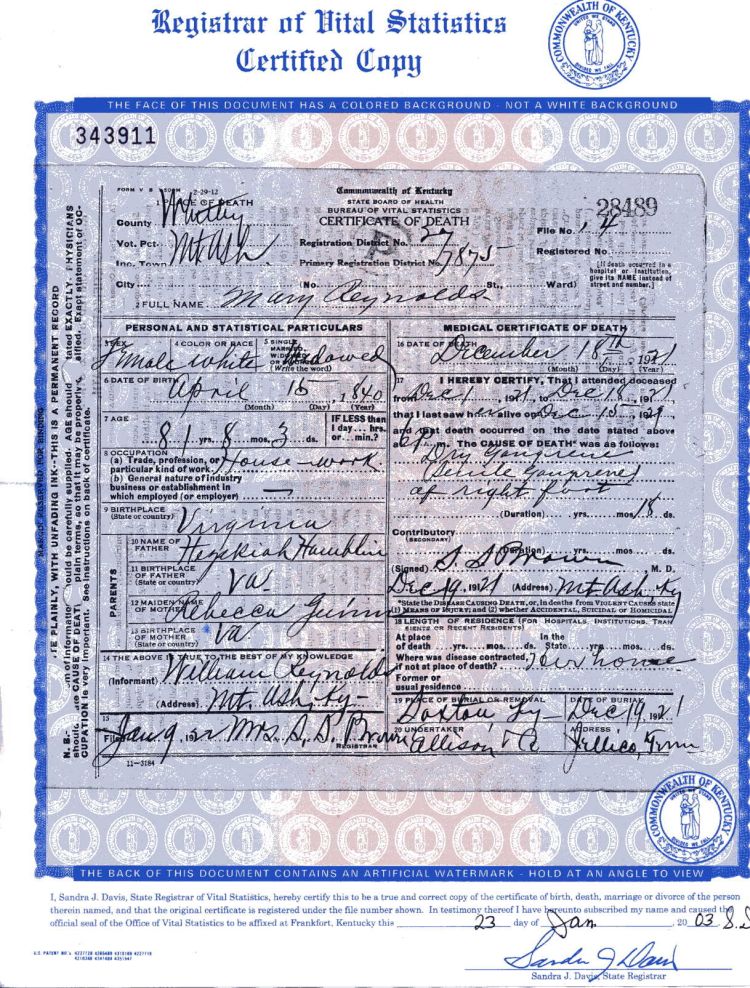 Registrar of Vital Statistics
Certified Copy
COMMONWEALTH OF KENTUCKY
UNITED WE STAND
DIVIDED WE FALL
THE FACE OF THIS DOCUMENT HAS A COLORED BACKGROUND - NOT A WHITE BACKGROUND
343911
FORM V S 2-29-12
Commonwealth of Kentucky
STATE BOARD OF HEALTH
BUREAU OF VITAL STATISTICS
CERTIFICATE OF DEATH
1 PLACE OF DEATH
County Whitley
Vot. Pct. Mt Ash
Inc. Town
City
Registration District No.
Primary Registration District No. 7875
28489
File No. 4
Registered No.
(No. St., Ward)
[If death occurred in a hospital or institution, give its NAME instead of street and number.]
2 FULL NAME Mary Reynolds
PERSONAL AND STATISTICAL PARTICULARS
3 SEX Female
4 COLOR OR RACE White
5 SINGLE MARRIED, WIDOWED OR DIVORCED Widowed
(Write the word)
6 DATE OF BIRTH April 15, 1840
(Month) (Day) (Year)
7 AGE 81 yrs. 8 mos. 3 ds.
IF LESS than 1 day... hrs. or... min.?
8 OCCUPATION
(a) Trade, profession, or particular kind of work House-work
(b) General nature of industry business or establishment in which employed (or employer) —
9 BIRTHPLACE
(State or country) Virginia
PARENTS
10 NAME OF FATHER Hezekiah Hamblin
11 BIRTHPLACE OF FATHER
(State or country) Va
12 MAIDEN NAME OF MOTHER Rebecca
13 BIRTHPLACE OF MOTHER
(State or country) Va
14 THE ABOVE IS TRUE TO THE BEST OF MY KNOWLEDGE
(Informant) William Reynolds
(Address) Mt. Ash, Ky-
15
Filed Jan 9, 1922 Mrs. S. S. Brown
REGISTRAR
11-3184
MEDICAL CERTIFICATE OF DEATH
16 DATE OF DEATH December 18th, 1921
(Month) (Day) (Year)
17 I HEREBY CERTIFY, That I attended deceased
from Dec 1, 1921, to Dec 18, 1921
that I last saw her alive on Dec 15, 1921
and that death occurred on the date stated above
at m. The CAUSE OF DEATH* was as follows:
Dry Gangrene
Senile Gangrene
of right foot
(Duration) yrs. mos. 18 ds.
Contributory
(SECONDARY)
(Duration) yrs. mos. ds.
(Signed) S. S. Brown M. D.
Dec 19, 1921 (Address) Mt Ash, Ky
*State the DISEASE CAUSING DEATH, or, in deaths from VIOLENT CAUSES state
(1) MEANS OF INJURY; and (2) whether ACCIDENTAL, SUICIDAL or HOMICIDAL
18 LENGTH OF RESIDENCE (FOR HOSPITALS, INSTITUTIONS, TRANSIENTS OR RECENT RESIDENTS)
At place of death yrs. mos. ds. In the State yrs. mos. ds.
Where was disease contracted, if not at place of death? Her home
Former or usual residence
19 PLACE OF BURIAL OR REMOVAL
DATE OF BURIAL Dec 19, 1921
20 UNDERTAKER Allison
ADDRESS Jellico, Tenn
THE BACK OF THIS DOCUMENT CONTAINS AN ARTIFICIAL WATERMARK - HOLD AT AN ANGLE TO VIEW
I, Sandra J. Davis, State Registrar of Vital Statistics, hereby certify this to be a true and correct copy of the certificate of birth, death, marriage or divorce of the person
therein named, and that the original certificate is registered under the file number shown. In testimony thereof I have hereunto subscribed my name and caused the
official seal of the Office of Vital Statistics to be affixed at Frankfort, Kentucky this 23 day of Jan. 2003
Sandra J Davis
Sandra J. Davis, State Registrar